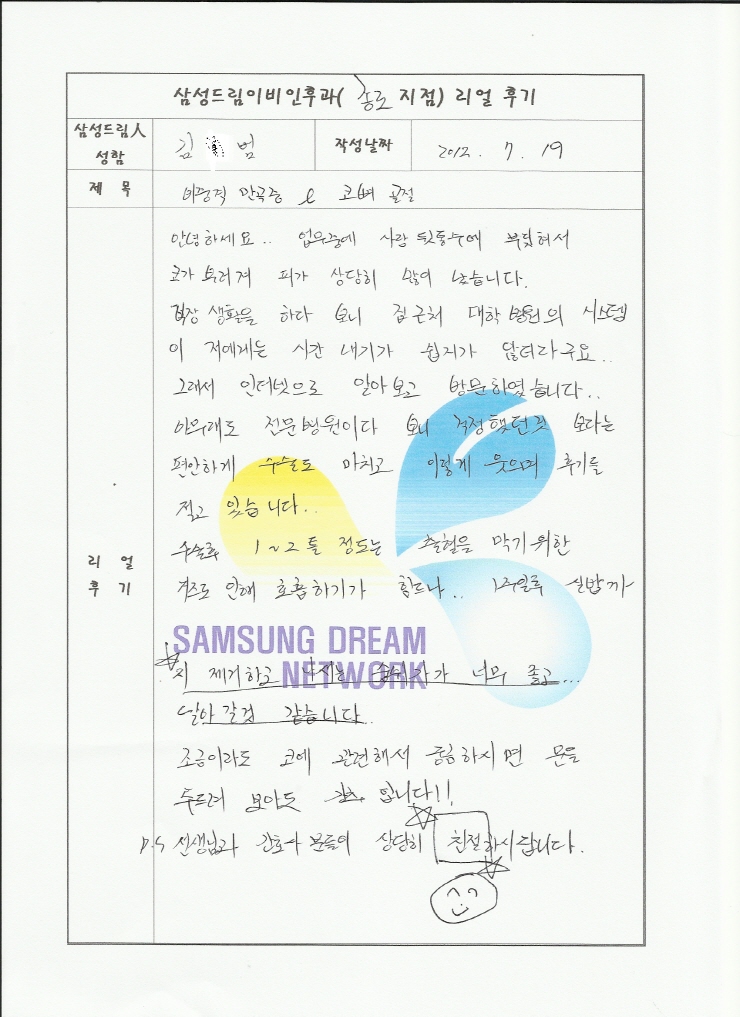 삼성드림이비인후과( 종로 지점) 리얼 후기
삼성드림人 성함
김 범
작성날짜
2012. 7. 19
제 목
비중격 만곡증 & 코뼈 골절
리 얼 후 기
안녕하세요.. 업무중에 사람 뒷통수에 부딪혀서
코가 부러져 피가 상당히 많이 났습니다.
직장 생활을 하다 보니 집근처 대학병원의 시스템
이 저에게는 시간 내기가 쉽지가 않더라구요..
그래서 인터넷으로 알아보고 방문하였습니다..
아무래도 전문병원이다 보니 걱정했던것 보다는
편안하게 수술도 마치고 이렇게 웃으며 후기를
적고 있습니다..
수술후 1~2틀 정도는 출혈을 막기위한
거즈로 인해 호흡하기가 힘드나.. 1주일후 실밥까
SAMSUNG DREAM
NETWORK
지 제거하고 나서는 가 너무 좋고...
날아갈것 같습니다..
조금이라도 코에 관련해서 궁금하시면 문을
두드려 보아도 입니다!!
P.S 선생님과 간호사 분들이 상당히 친절하시답니다.